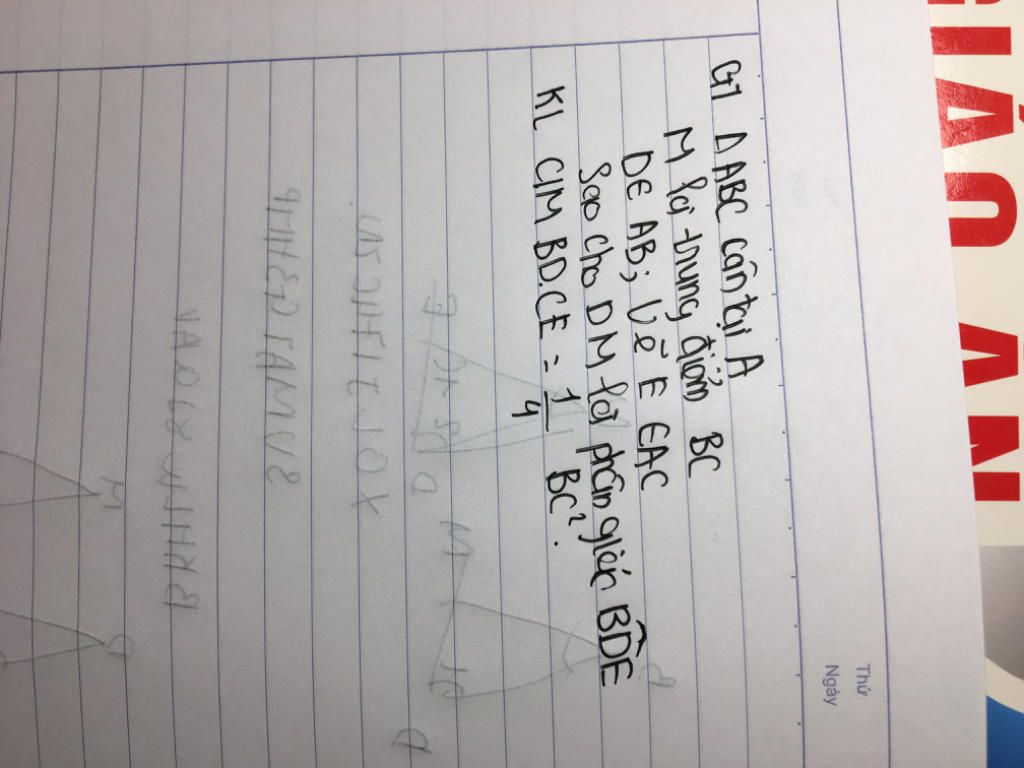 GT Δ ABC cân tại A
M là trung điểm BC
D∈ AB; Vẽ E ∈AC
Sao cho DM là phân giác BDE
KL C/M BD.CE = 1/4 BC².
Thứ
Ngày
GIÁO ÁN